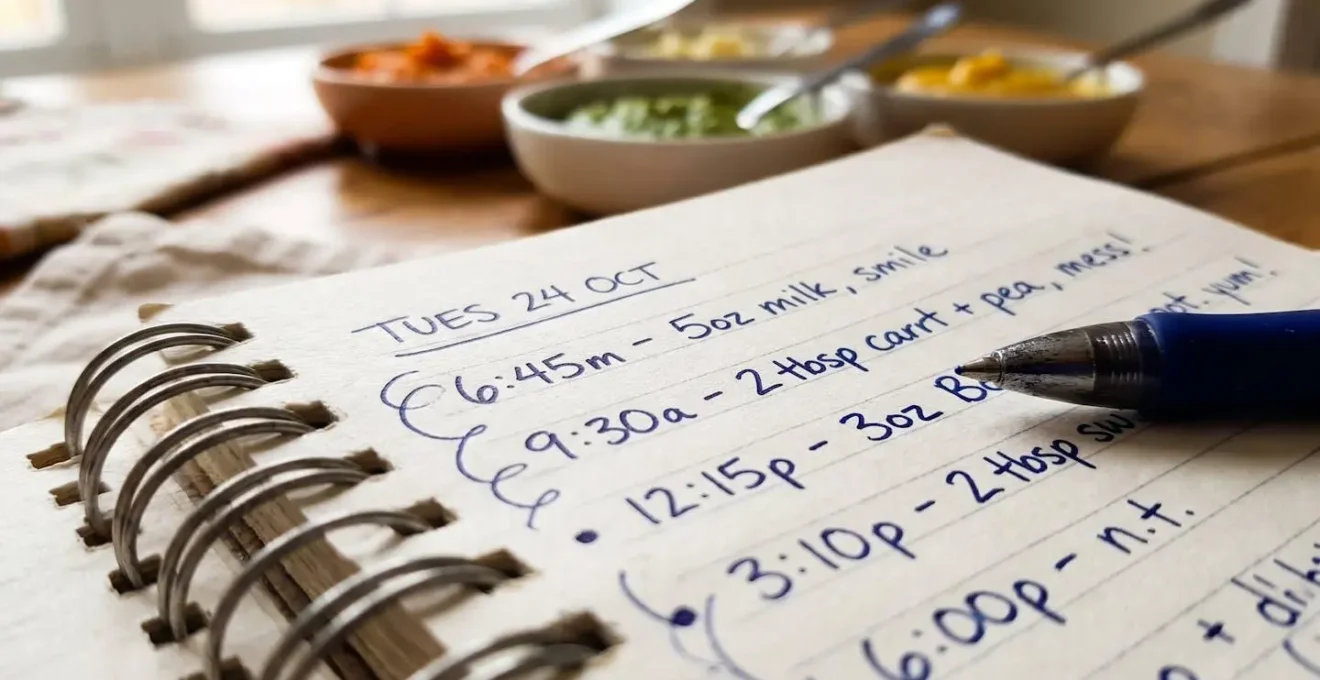 TUES 24 OCT
6:45m - 5oz milk, smile
9:30a - 2 tbsp carrt + pea, mess!
12:15p - 3oz yum!
3:10p - 2 tbsp
6:00p - n.t.
+